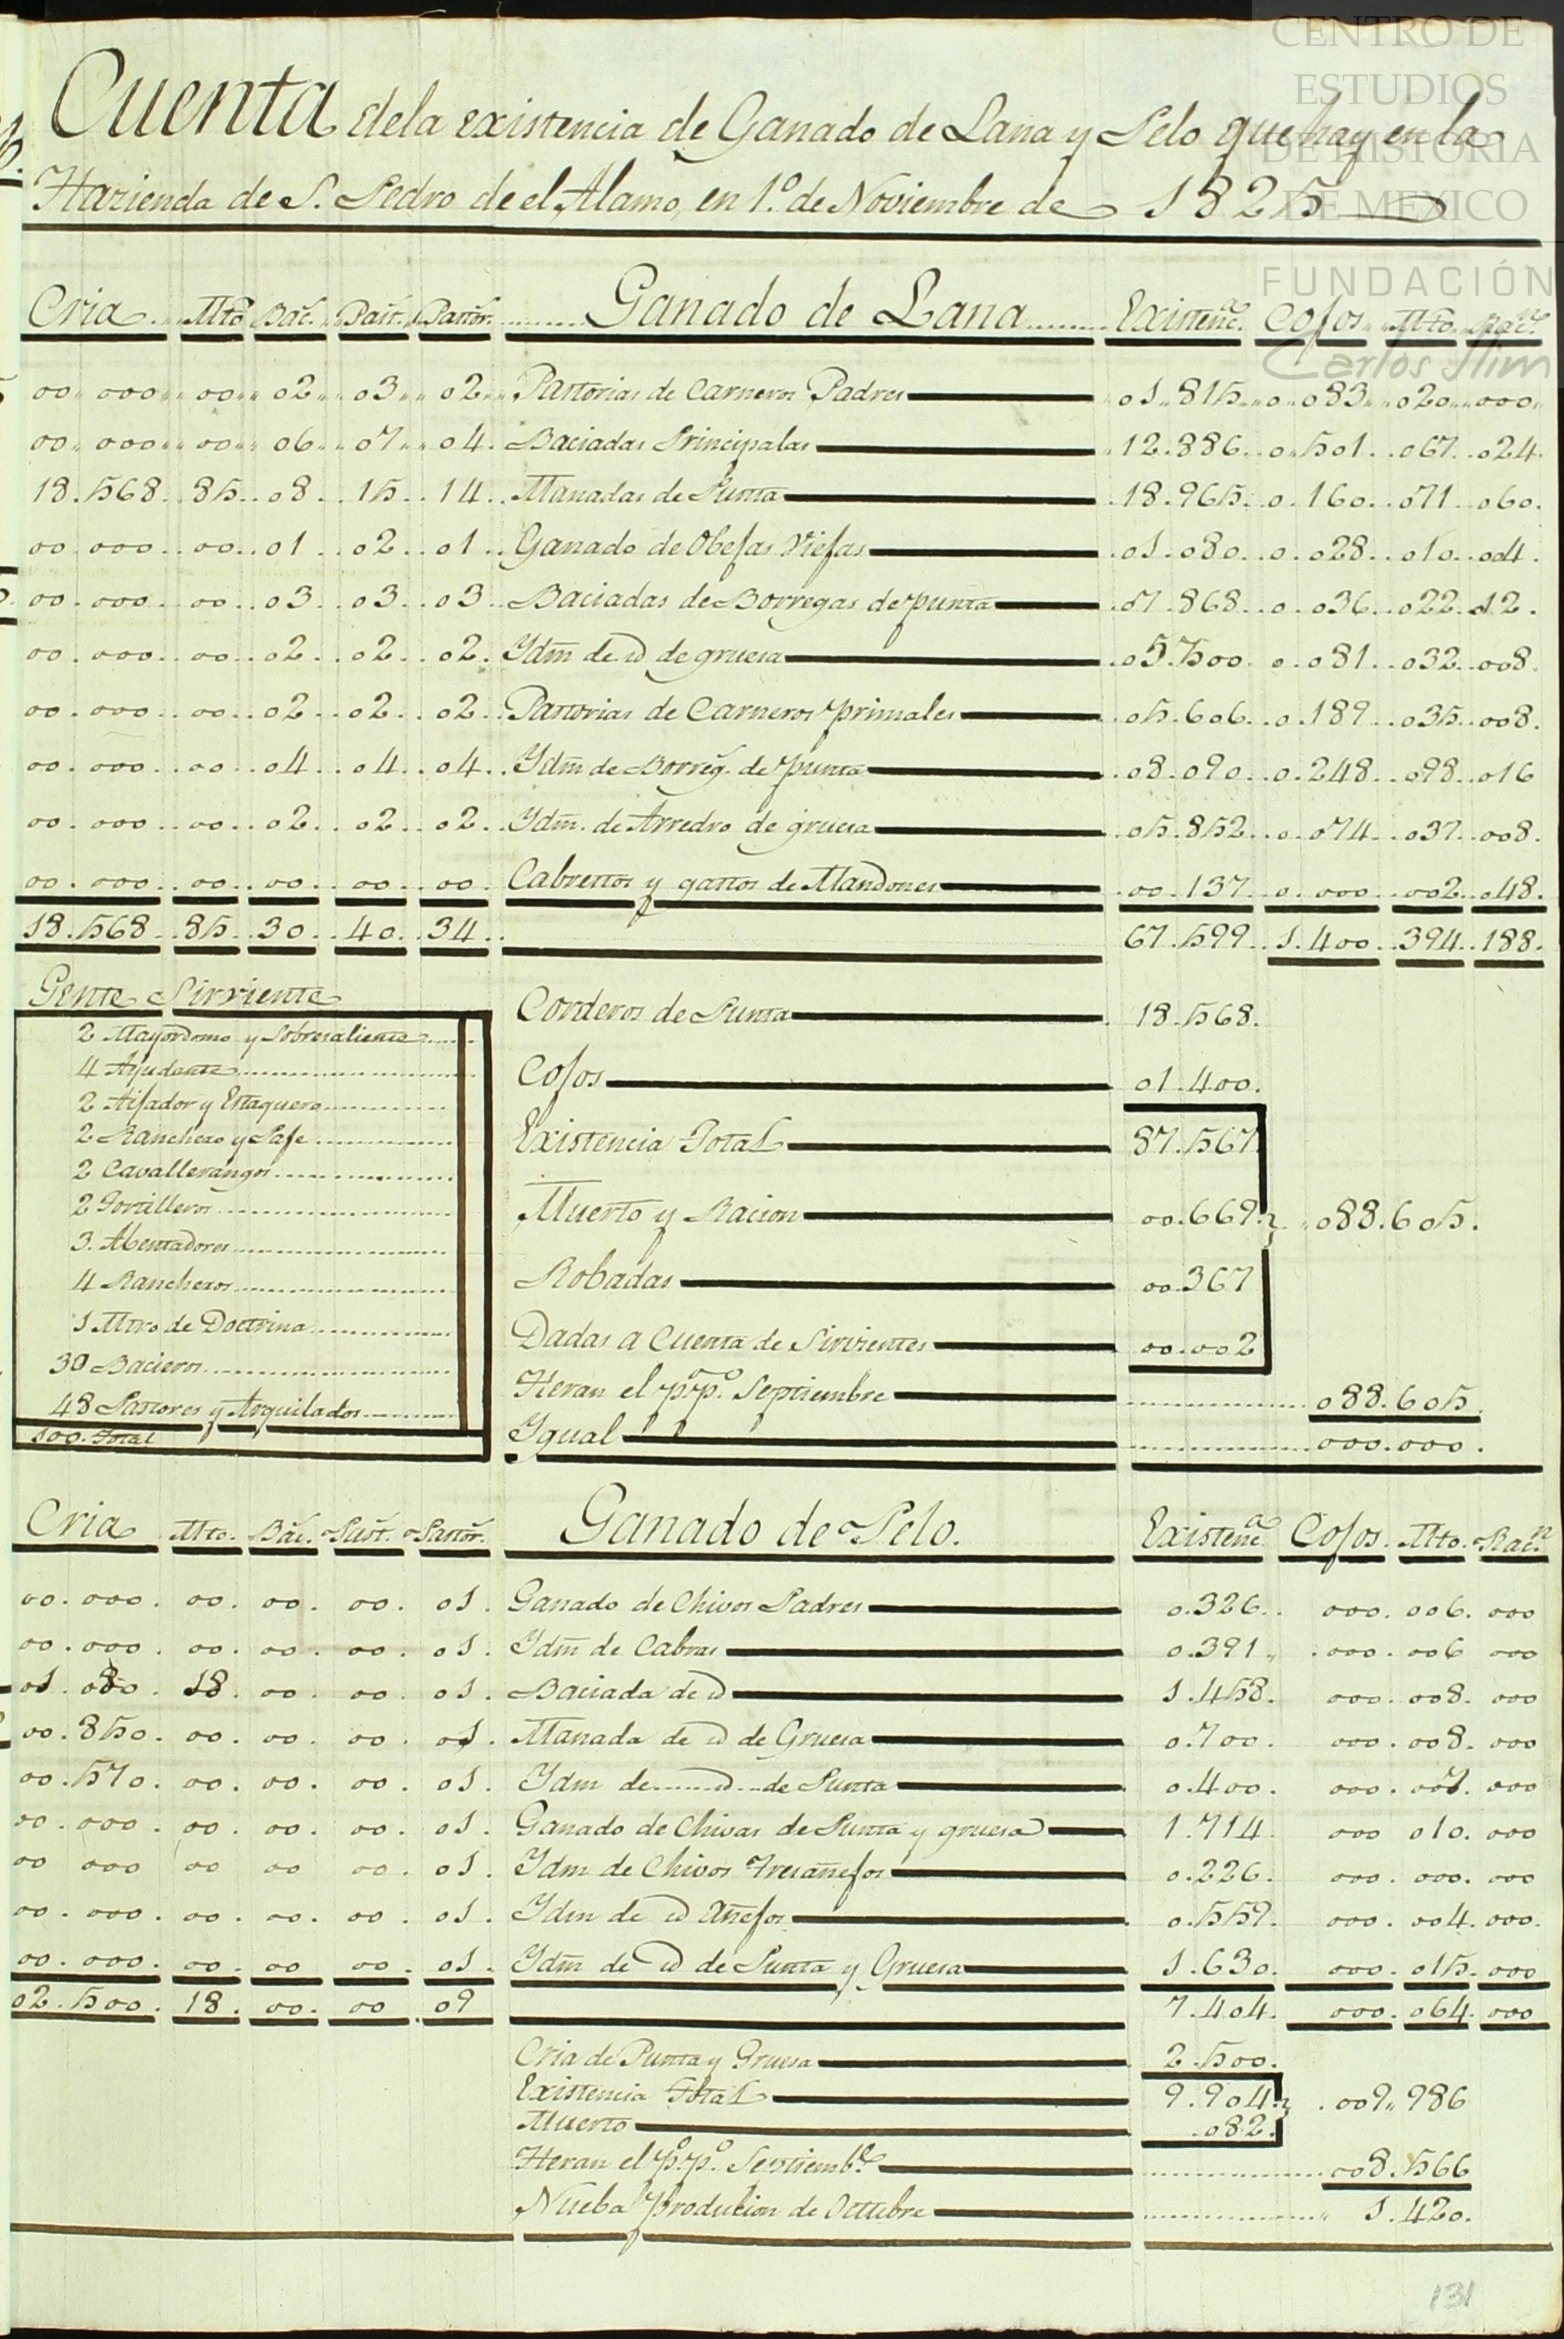 CENTRO DE
ESTUDIOS
DE HISTORIA
DE MEXICO
FUNDACIÓN
Carlos Slim
Cuenta dela existencia de Ganado de Lana y Pelo que hay en la
Hazienda de S. Pedro de el Alamo, en 1º. de Noviembre de 1825
Cria Mto Bac. Past. Pastor. Ganado de Lana Existenca. Cojos Mto Racn.
00 000 00 02 03 02 Pastorias de Carneros Padres 01.815 0.083 020 000
00 000 00 06 07 04 Baciadas Principalas 12.886 0.501 067 024
18.568 85 08 15 14 Manadas de Punta 18.965 0.160 071 060
00 000 00 01 02 01 Ganado de Obejas Viejas 01.080 0.028 010 004
00.000 00 03 03 03 Baciadas de Borregas de punta 07.868 0.036 022 12
00.000 00 02 02 02 Ydm de id de gruesa 05.500 0.081 032 008
00.000 00 02 02 02 Pastorias de Carneros primales 05.606 0.189 035 008
00.000 00 04 04 04 Ydm de Borreg. de punta 08.090 0.248 098 016
00.000 00 02 02 02 Ydm. de Arredro de gruesa 05.852 0.074 037 008
00.000 00 00 00 00 Cabrestos y gastos de Mandones 00.137 0.000 002 048
18.568 85 30 40 34 67.599 1.400 394 188
Gente Sirviente
2 Mayordomo y Sobresaliente
4 Ayudante
2 Aijador y Estaquero
2 Ranchero y Paje
2 Cavallerangos
2 Portilleros
3. Abentadores
4 Rancheros
1 Mtro de Doctrina
30 Bacieros
48 Pastores y Arquilados
100. Total
Corderos de Punta 18.568.
Cojos 01.400.
Existencia Total 87.567
Muerto y Racion 00.669 088.605.
Robadas 00.367
Dadas a Cuenta de Sirvientes 00.002
Heran el pº.pº. Septiembre 088.605.
Ygual 000.000.
Cria Mto. Bac. Past. Pastor. Ganado de Pelo. Existenca Cojos. Mto. Racn.
00.000. 00. 00. 00. 01. Ganado de Chivos Padres 0.326. 000. 006. 000
00.000. 00. 00. 00. 01. Ydm de Cabras 0.391 000. 006 000
01.080. 18. 00. 00. 01. Baciada de id 1.458. 000. 008. 000
00.850. 00. 00. 00. 01. Manada de id de Gruesa 0.700. 000. 008. 000
00.570. 00. 00. 00. 01. Ydm de id de Punta 0.400. 000. 007. 000
00.000. 00. 00. 00. 01. Ganado de Chivas de Punta y gruesa 1.714. 000 010. 000
00 000 00 00 00. 01. Ydm de Chivos Tresañejos 0.226. 000. 000. 000
00.000. 00. 00. 00. 01. Ydm de id Añejos 0.559. 000. 004. 000.
00.000. 00. 00 00. 01. Ydm de id de Punta y Gruesa 1.630. 000. 015. 000
02.500. 18. 00. 00 09 7.404. 000. 064. 000
Cria de Punta y Gruesa 2.500.
Existencia Total 9.904. 009.986
Muerto 082.
Heran el pº.pº. Septiembe 008.566
Nueba Producion de Octubre 1.420.
131